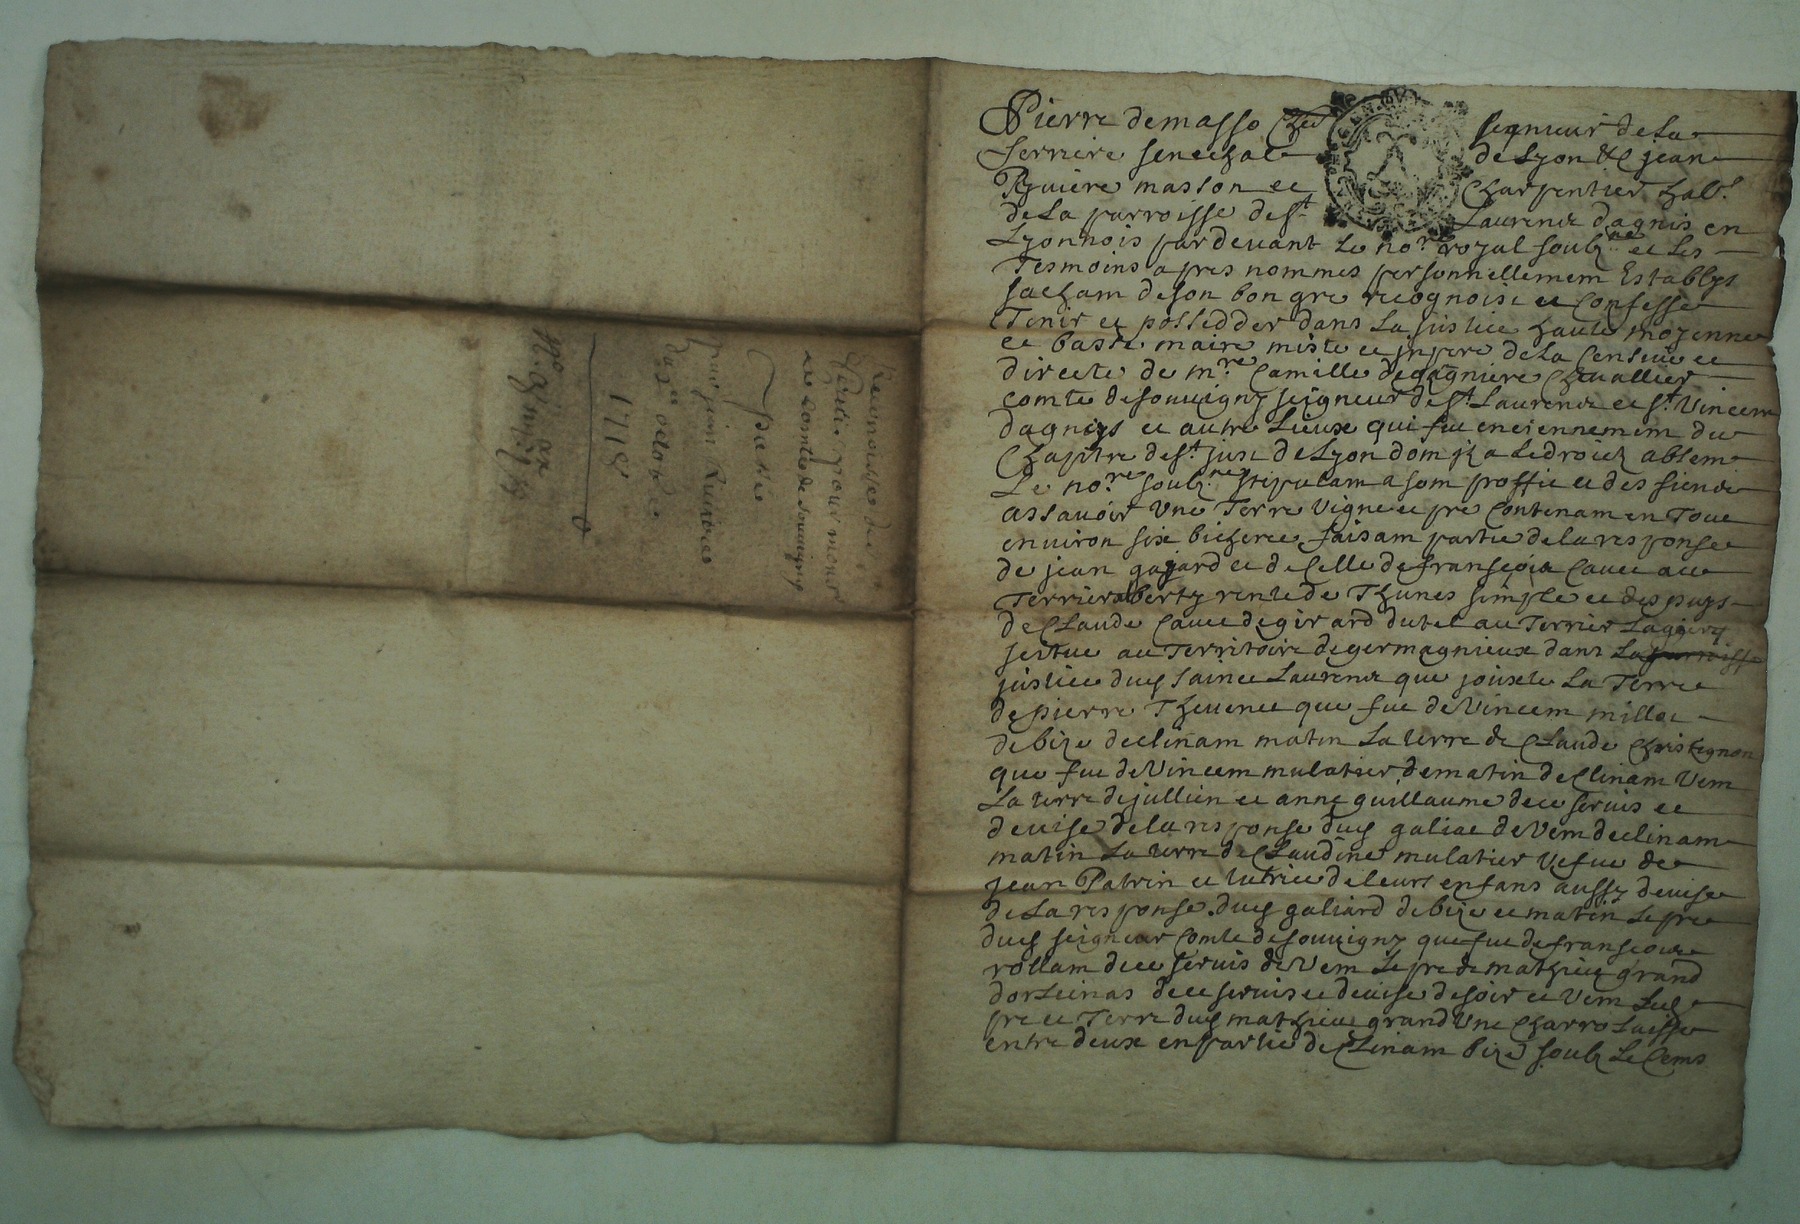 Reconnoissance de
Vente pour monsr
le comte de Souvigny
passée
par jean Ruvieres
du xe octobre
1718
Pierre demasso Cher seigneur de La
ferriere senechal de Lyon &c jean
Ruviere masson et Charpentier habt
de La parroisse de st Laurend dagnis en
Lyonnois pardevant Le nore royal soubzne et Les
Tesmoins apres nommes personnellement Establys
sacham de son bon gre recognoist et Confesse
Tenir et possedder dans La justice haute moyenne
et basse maire miste et jmpere de La Censive et
directe de mre Camille degagniere Chevallier
comte de souvigny seigneur de st Laurend et st Vincent
dagnys et autre Lieux qui fut enciennement du
Chapitre de st just de Lyon dom jl a Le droict absem
Le nore soubzne stipulam a som proffit et des siens
assavoir une Terre Vigne et pre Contenam en Tout
environ six bicheree faisam partie de la response
de jean gajard et de Celle de franscois Cavet au
Terrier alberty rente de Thunes simple et des puys
de Claude Cavet de girard dutel au Terrier Lagiery
scitue au Territoire de germagnieux dans La parroisse
justice dud Sainct Laurend que jouxte La Terre
de pierre Thevenet que fut de Vincem millot
de bize declinam matin La terre de Claude Christegnon
que fut de Vincem mulatier de matin declinam Vem
La terre de jullien et anne guillaume de ce servis et
devise de la response dud galiat de Vem declinam
matin La terre de Claudine mulatier Vefue de
jean Patrin et tutrice de leurs enfans aussy devise
de La response dud galiard de bize et matin Le pre
dud seigneur Comte de souvigny que fut de franscois
rollam de ce servis de Vem Le pre de mathieu grand
dorleinas de ce servis et devise de soir et Vem Led
pre et Terre dud mathieu grand Une Charro Laisse
entre deux en partie declinam bize soubz Le Cens